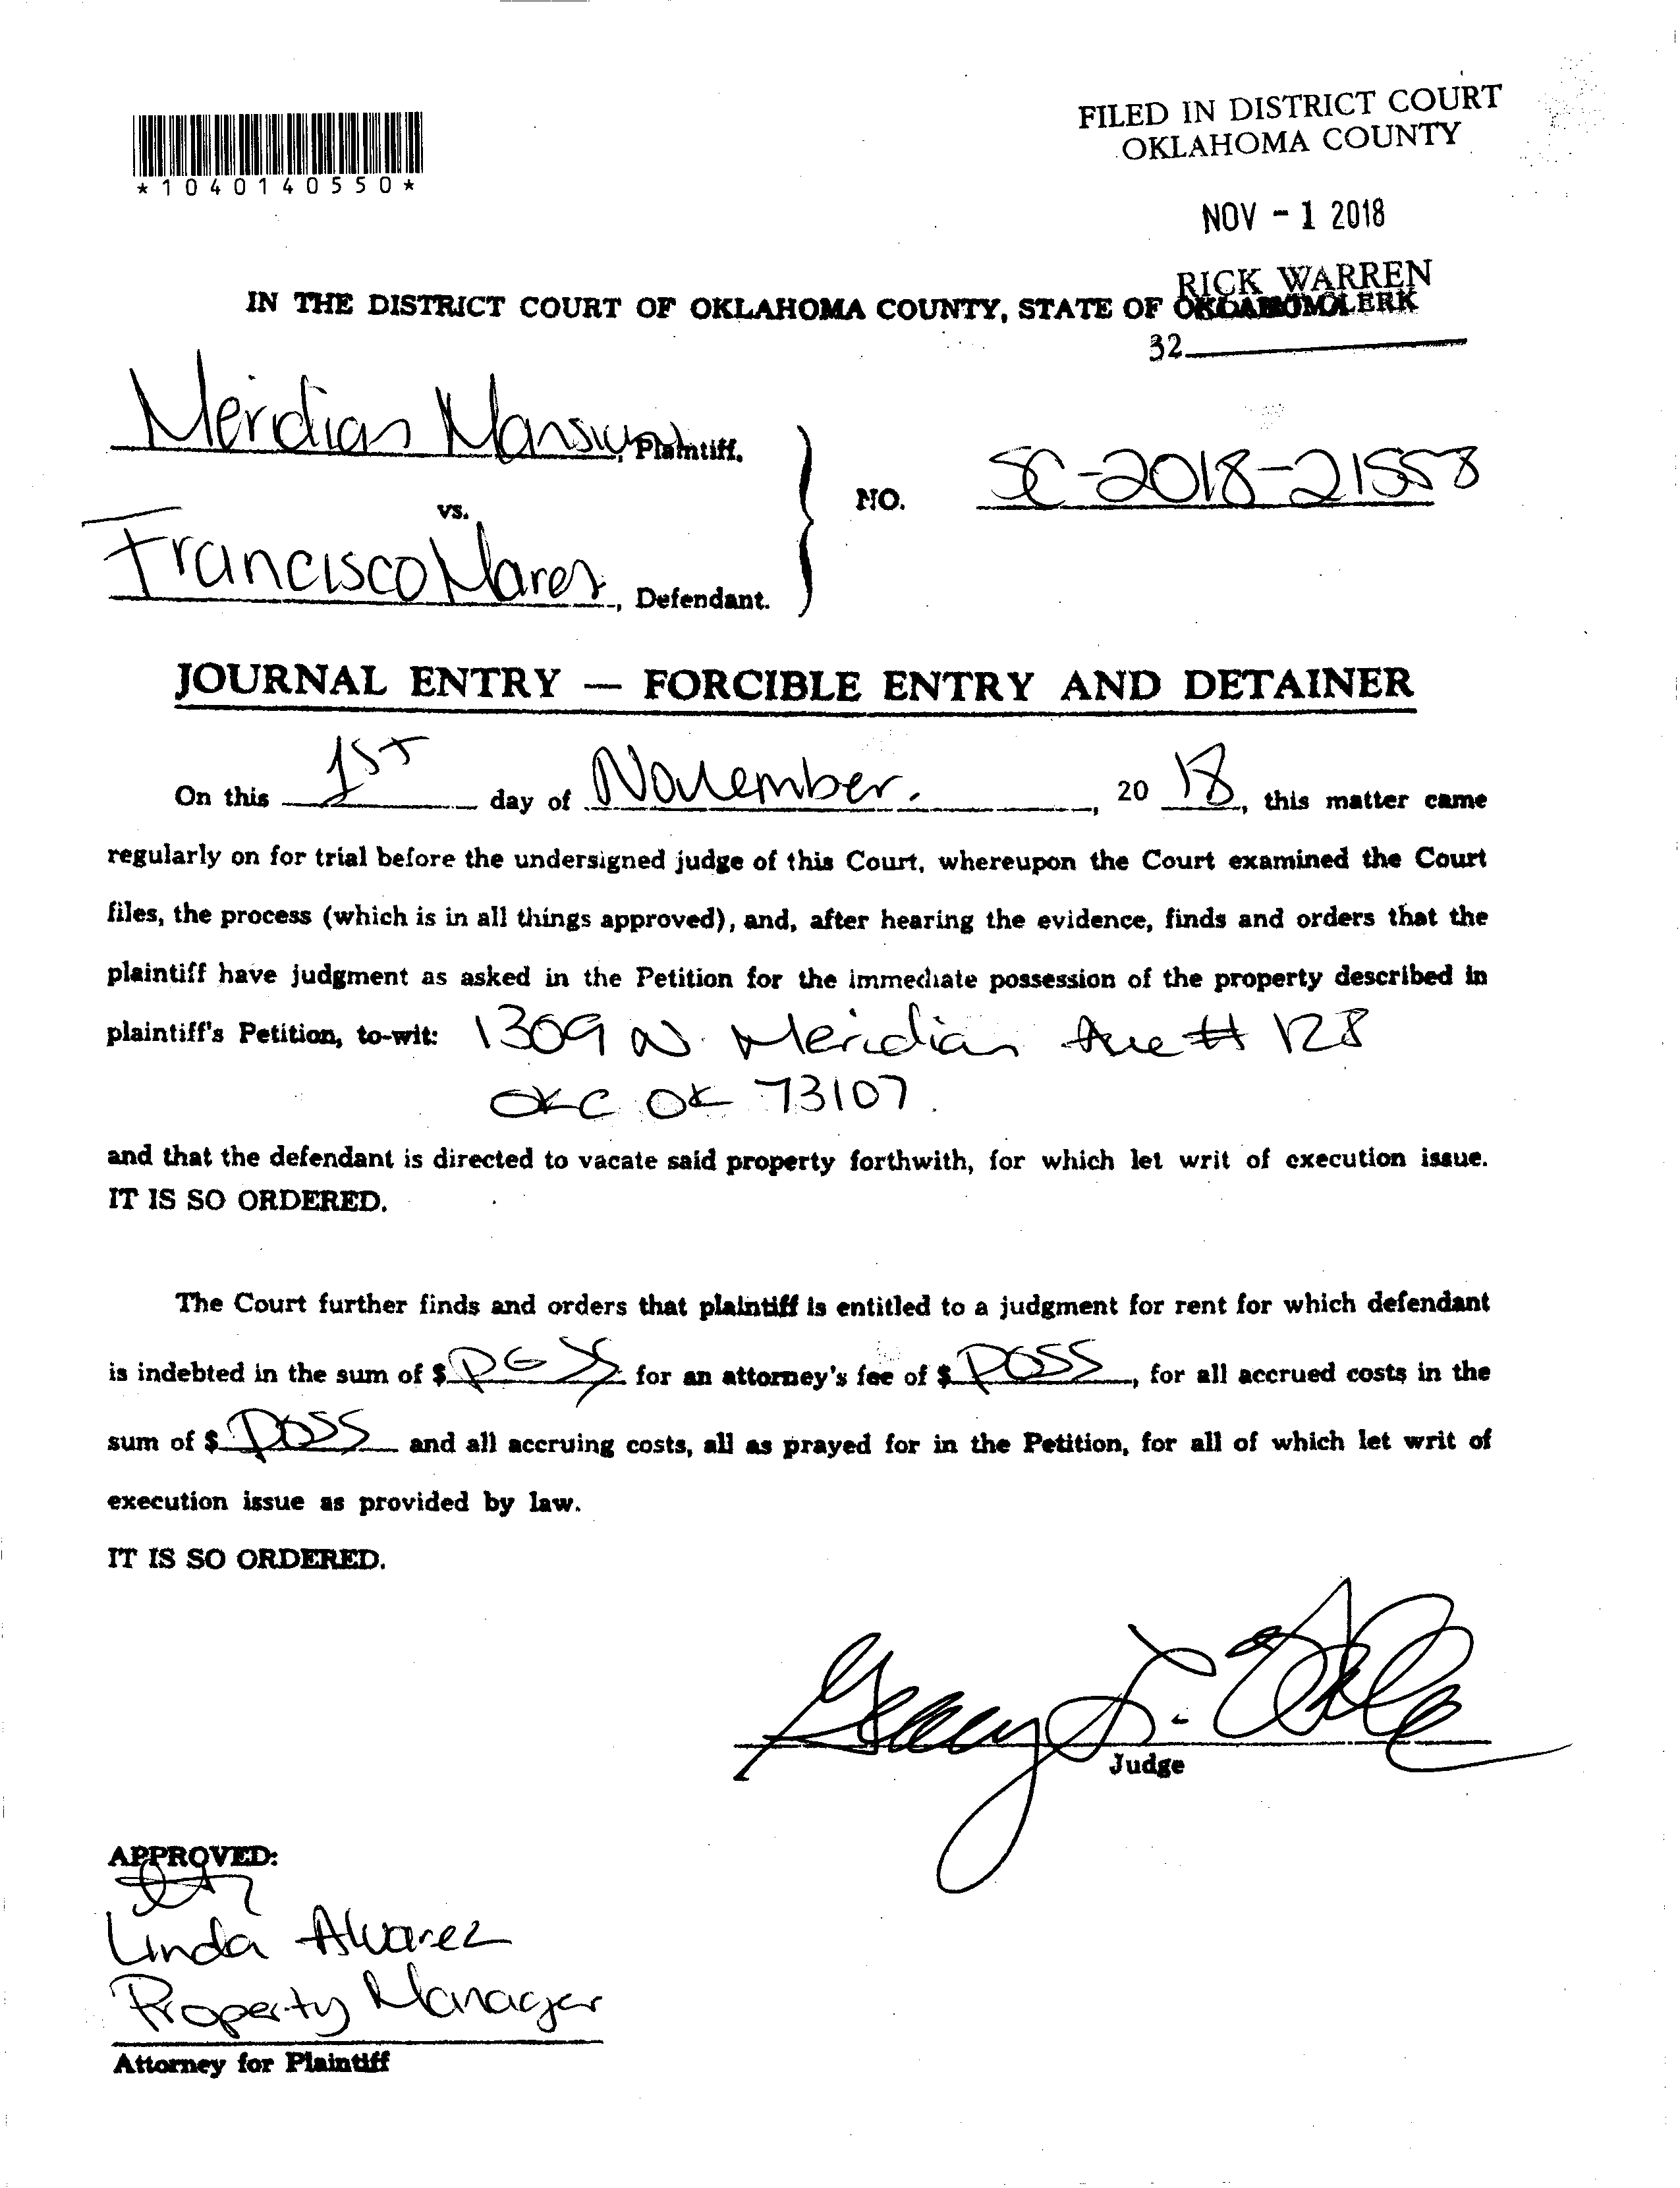 FILED IN DISTRICT COURT
OKLAHOMA COUNTY
*1040140550*
NOV - 1 2018
RICK WARREN
IN THE DISTRICT COURT OF OKLAHOMA COUNTY, STATE OF
32
Meridian Mansions, Plaintiff,
vs.
NO. SC-2018-21558
Francisco Mares, Defendant.
JOURNAL ENTRY — FORCIBLE ENTRY AND DETAINER
On this 1st day of November, 20 18, this matter came
regularly on for trial before the undersigned judge of this Court, whereupon the Court examined the Court
files, the process (which is in all things approved), and, after hearing the evidence, finds and orders that the
plaintiff have judgment as asked in the Petition for the immediate possession of the property described in
plaintiff's Petition, to-wit: 1309 N. Meridian Ave # 128
OKC OK 73107.
and that the defendant is directed to vacate said property forthwith, for which let writ of execution issue.
IT IS SO ORDERED.
The Court further finds and orders that plaintiff is entitled to a judgment for rent for which defendant
is indebted in the sum of $ for an attorney's fee of $ POSS, for all accrued costs in the
sum of $ POSS and all accruing costs, all as prayed for in the Petition, for all of which let writ of
execution issue as provided by law.
IT IS SO ORDERED.
Judge
APPROVED:
Linda Alvarez
Property Manager
Attorney for Plaintiff